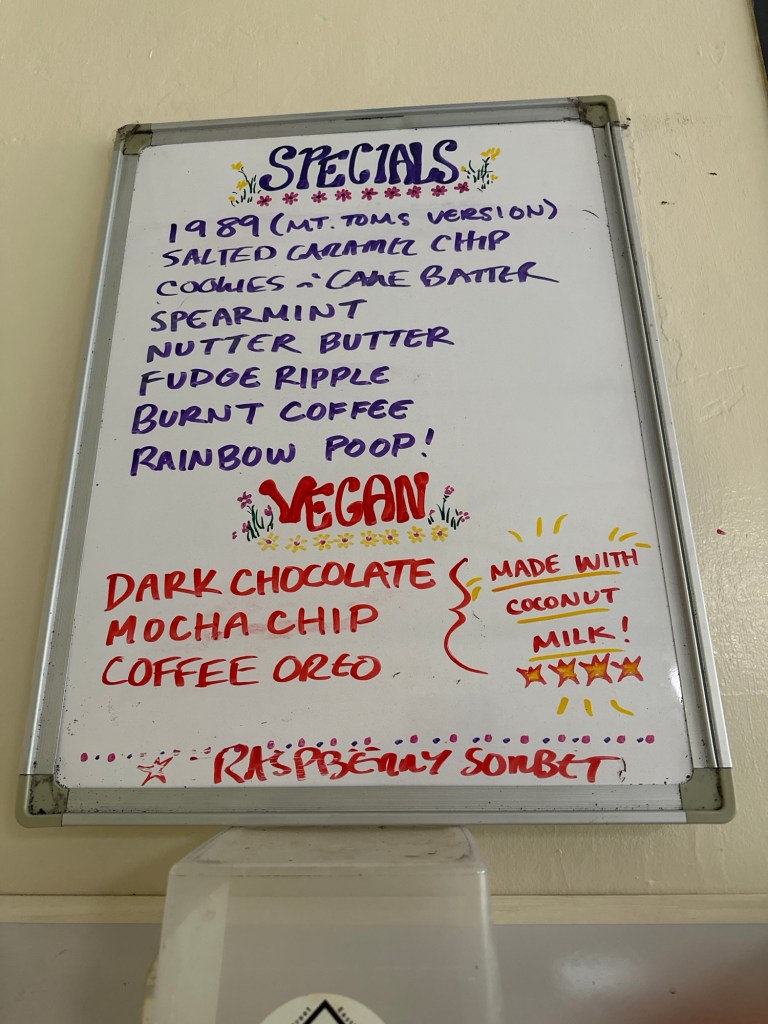 SPECIALS
1989 (MT. TOMS VERSION)
SALTED CARAMEL CHIP
COOKIES n' CAKE BATTER
SPEARMINT
NUTTER BUTTER
FUDGE RIPPLE
BURNT COFFEE
RAINBOW POOP!
VEGAN
DARK CHOCOLATE
MOCHA CHIP
COFFEE OREO
MADE WITH
COCONUT
MILK!
RASPBERRY SORBET